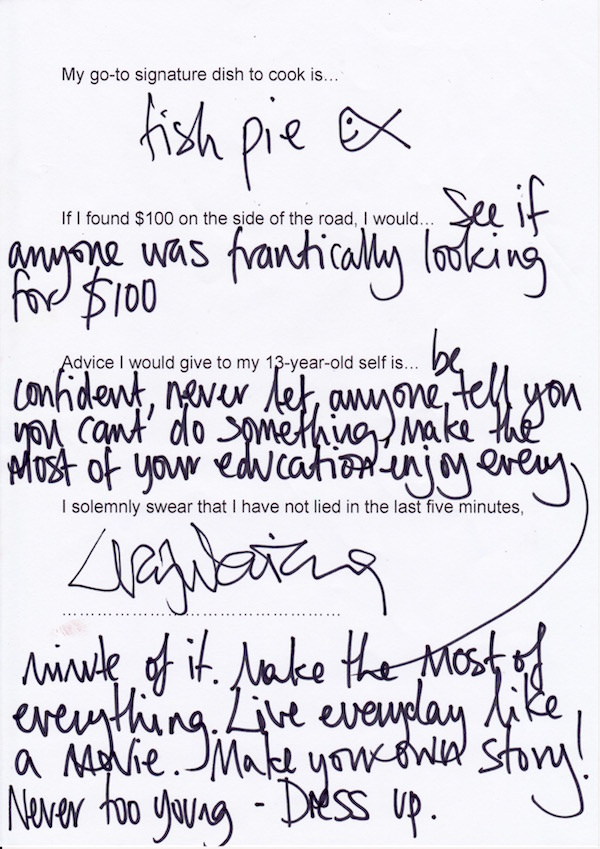 My go-to signature dish to cook is...
fish pie
If I found $100 on the side of the road, I would... See if
anyone was frantically looking
for $100
Advice I would give to my 13-year-old self is... be
confident, never let anyone tell you
you cant do something, make the
most of your education enjoy every
I solemnly swear that I have not lied in the last five minutes,
minute of it. Make the most of
everything. Live everyday like
a movie. Make your own story!
Never too young - Dress up.